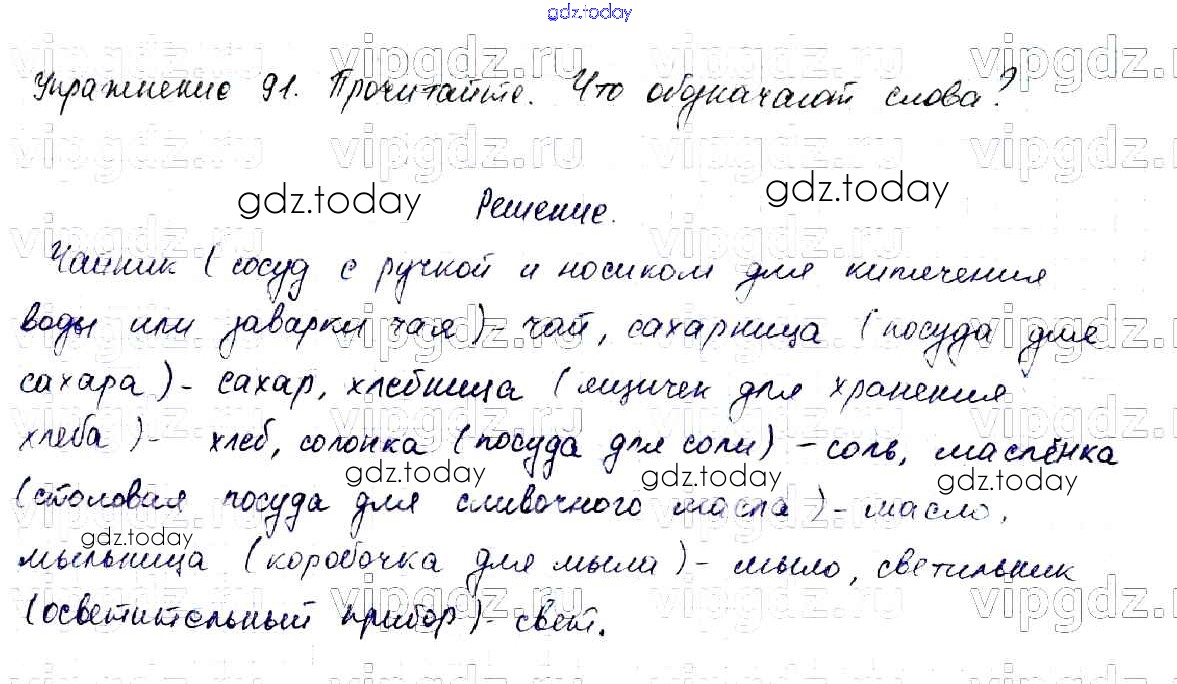 gdz.today
Упражнение 91. Прочитайте. Что обозначают слова?
vipgdz.ru vipgdz.ru vipgdz.ru
gdz.today gdz.today
Решение.
Чайник (сосуд с ручкой и носиком для кипячения
воды или заварки чая) - чай, сахарница (посуда для
сахара) - сахар, хлебница (ящичек для хранения
хлеба) - хлеб, солонка (посуда для соли) - соль, маслёнка
gdz.today gdz.today
(столовая посуда для сливочного масла) - масло,
gdz.today
мыльница (коробочка для мыла) - мыло, светильник
(осветительный прибор) - свет.